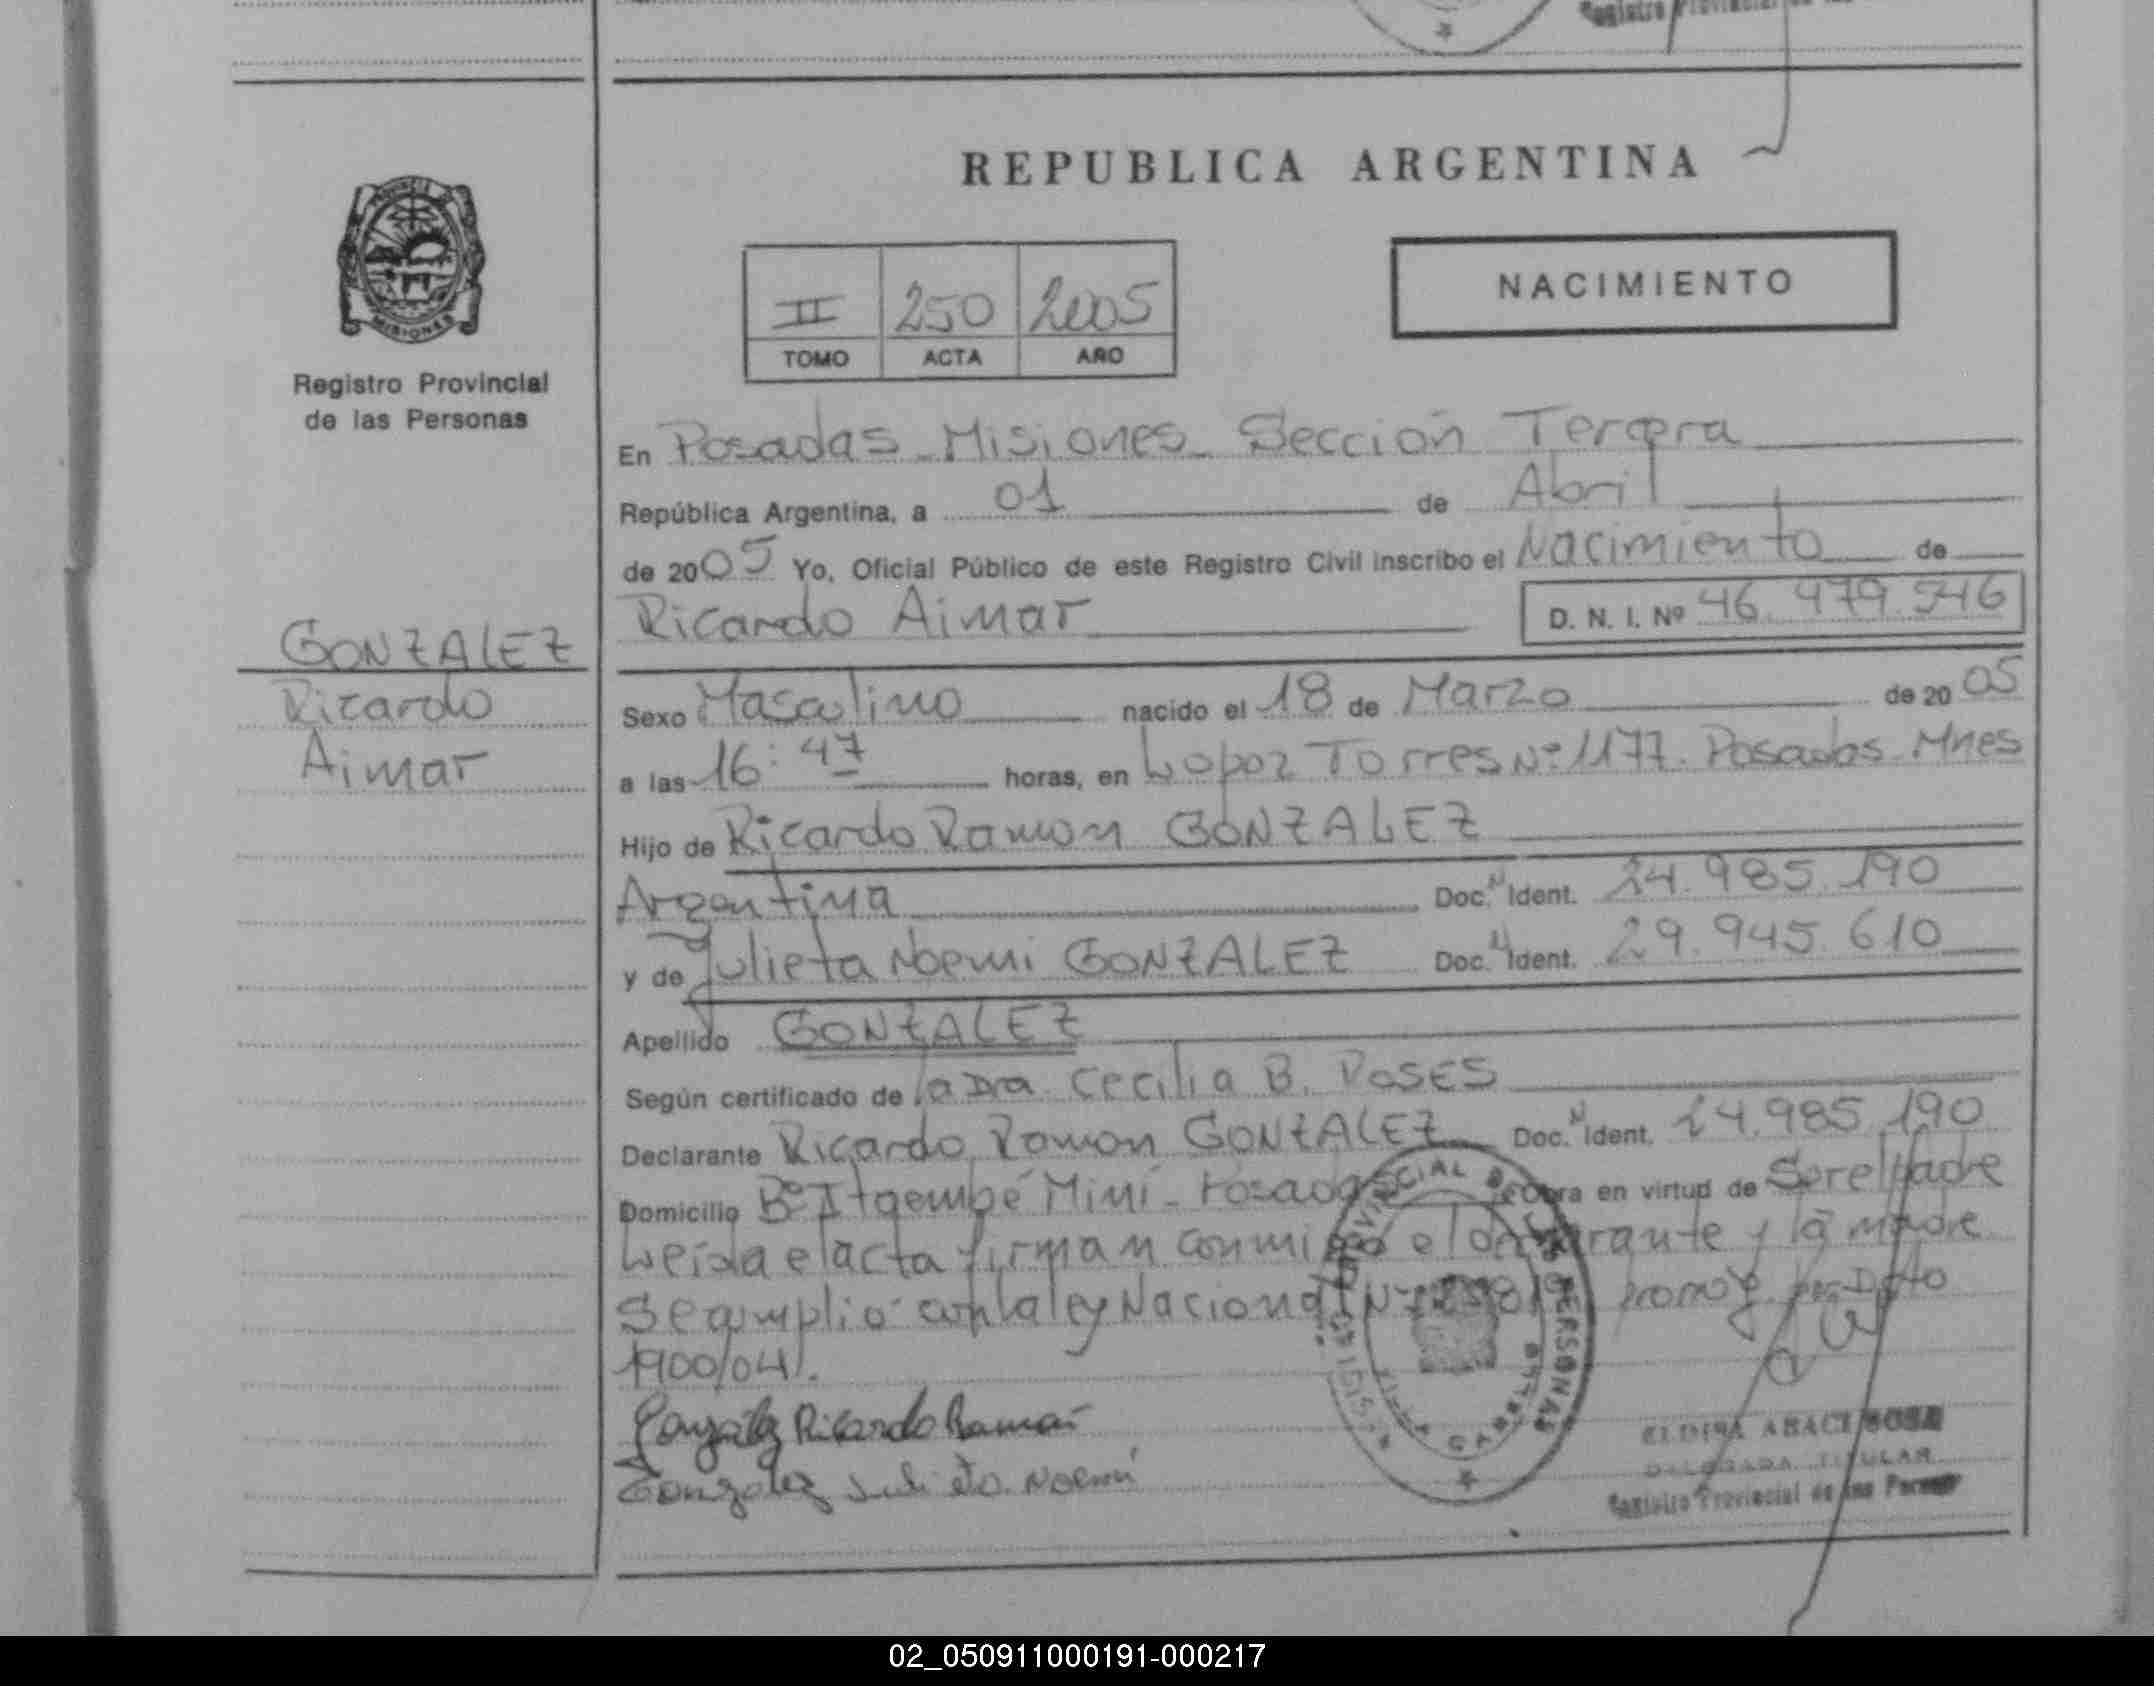 Registro Provincial de las
REPUBLICA ARGENTINA
PROVINCIA
MISIONES
II 250 2005
TOMO ACTA AÑO
NACIMIENTO
Registro Provincial
de las Personas
En Posadas - Misiones - Sección Tercera
República Argentina, a 01 de Abril
de 2005 Yo, Oficial Público de este Registro Civil inscribo el Nacimiento de
Ricardo Aimar D. N. I. Nº 46.479.546
GONZALEZ
Ricardo
Aimar
Sexo Masculino nacido el 18 de Marzo de 2005
a las 16:47 horas, en Lopez Torres Nº 1177. Posadas - Mnes
Hijo de Ricardo Ramon GONZALEZ
Argentina Doc. N Ident. 24.985.190
y de Julieta Noemi GONZALEZ Doc. N Ident. 29.945.610
Apellido GONZALEZ
Según certificado de la Dra. Cecilia B. ROSES
Declarante Ricardo Ramon GONZALEZ Doc. N Ident. 24.985.190
Domicilio Bº Itaembé Miní - Posadas Obra en virtud de Ser el padre
Leída el acta firman conmigo el declarante y la madre
Se cumplió con la ley Nacional Nº por Dcto
1900/04.
González Ricardo Ramón
Gonzalez Julieta Noemí
DELEGADA TITULAR
Registro Provincial de las Personas
02_050911000191-000217